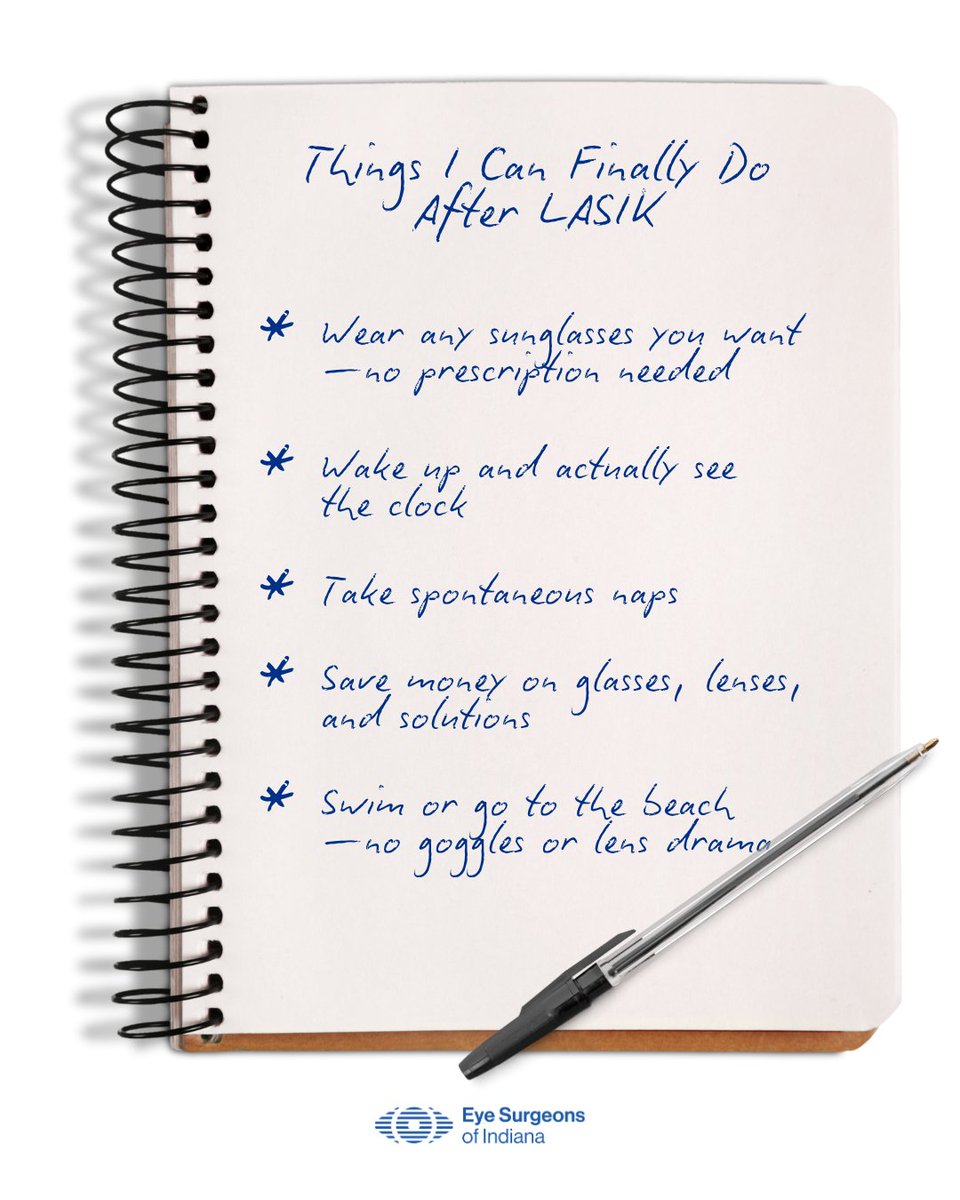 Things I Can Finally Do
After LASIK
* Wear any sunglasses you want
—no prescription needed
* Wake up and actually see
the clock
* Take spontaneous naps
* Save money on glasses, lenses,
and solutions
* Swim or go to the beach
—no goggles or lens drama
Eye Surgeons
of Indiana